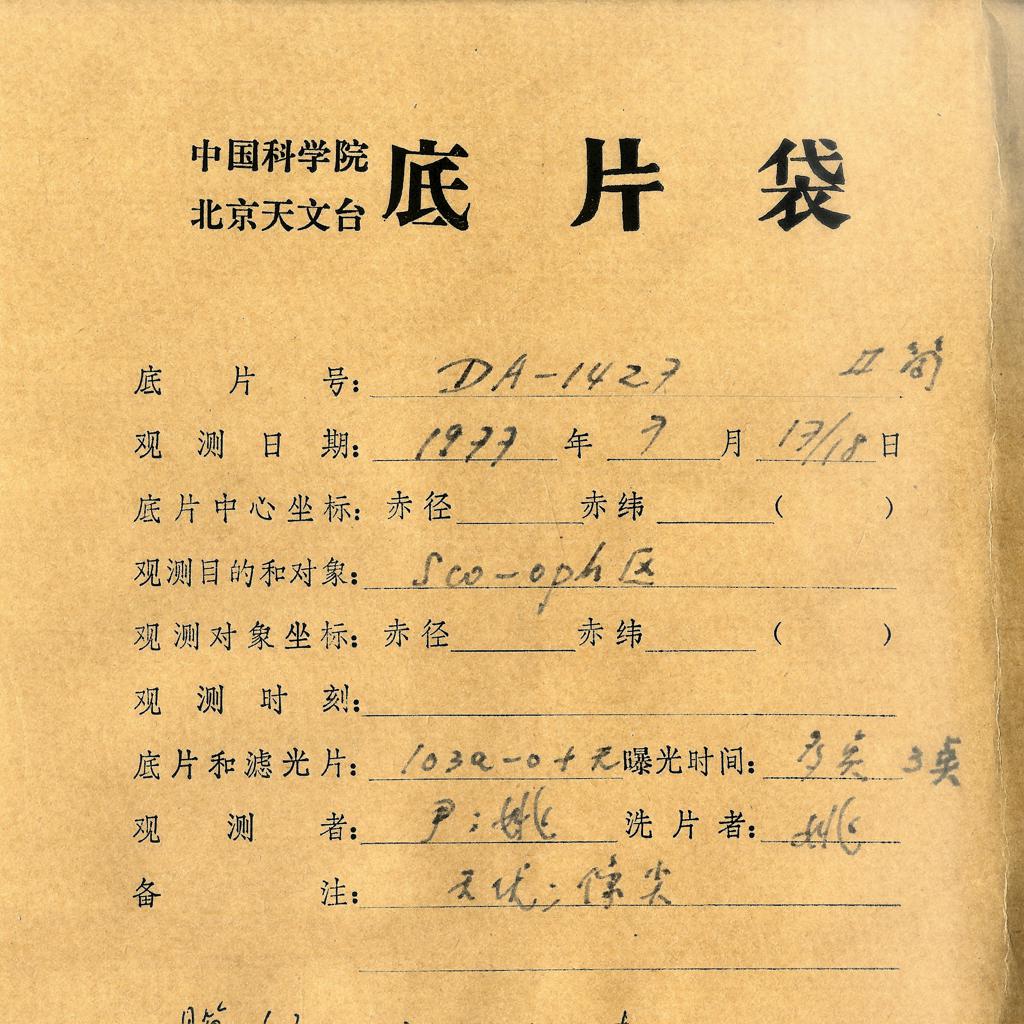 中国科学院
北京天文台
底片袋
底片号: DA-1427
观测日期: 1977年7月17/18日
底片中心坐标: 赤径 赤纬 ( )
观测目的和对象: Sco-oph区
观测对象坐标: 赤径 赤纬 ( )
观测时刻:
底片和滤光片: 103a-0+无 曝光时间:
观测者: 尹; 姚 洗片者: 姚
备注: 天优; 像尖